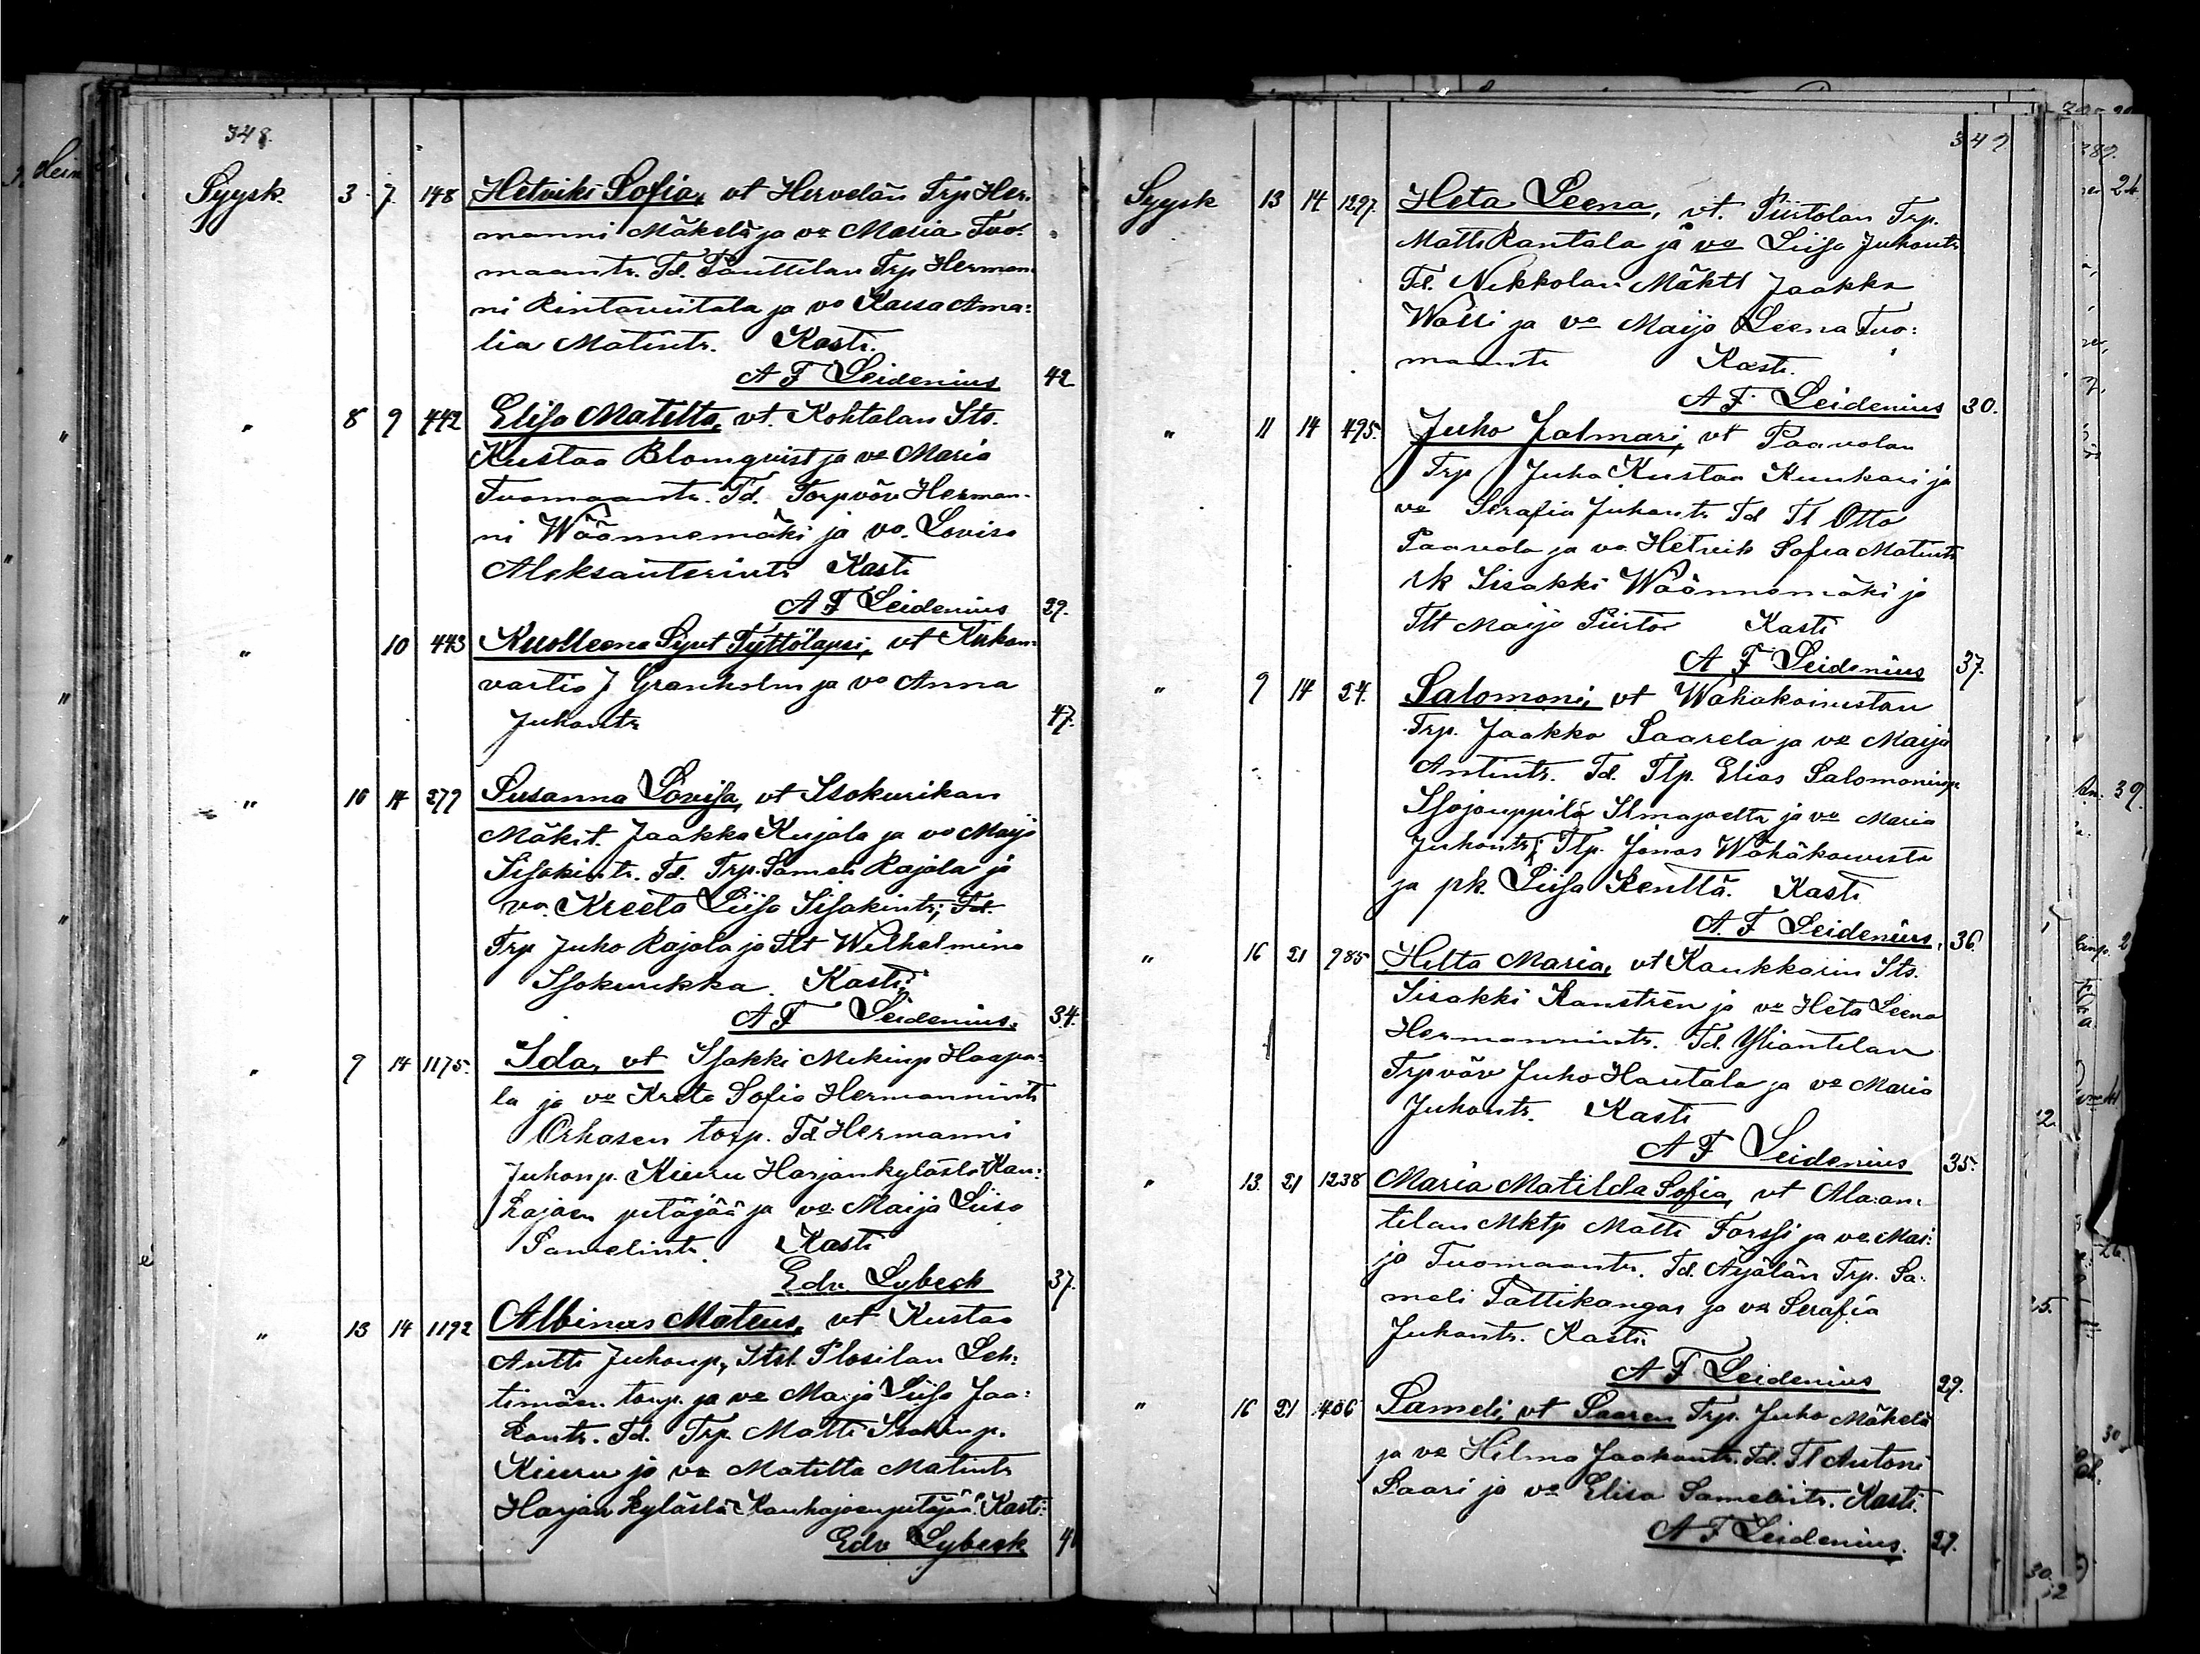 348.
Syysk. 3. 7. 148 Hetviki Sofia, vt Hervelän Trp Her-
manni Mäkelä ja vo Maria Tuo-
maantr. Td. Panttilan Trp Herman-
ni Rintaviitala ja vo Kaisa Ama-
lia Matintr. Kasti.
A F Leidenius 42
" 8 9 442 Elisa Matilta, vt. Kohtalan Its.
Kustaa Blomqvist ja vo Maria
Tuomaantr. Td. Torpväv Herman-
ni Wäännemäki ja vo. Lovisa
Aleksanterintr Kasti
A F Leidenius 29.
" 10 443 Kuolleena Synt Tyttölapsi, vt
vartia J Granholm ja vo Anna
Juhontr 47.
" 10 14 279 Susanna Lovisa, vt Isokurikan
Mäkit. Jaakko Kujala ja vo Maija
Iisakintr. Td. Trp. Sameli Rajala ja
vo. Kreeta Liisa Iisakintr; Td.
Trp Juho Rajala ja Tlt Wilhelmina
Isokurikka. Kasti:
A F Leidenius. 34.
" 9 14 1175. Ida, vt Isakki Mikinp Haapa-
la ja vo Kreta Sofia Hermannintr
Orhasen torp. Td. Hermanni
Juhonp. Kiuru Harjankylästä Kau-
hajoen pitäjää ja vo. Maija Liisa
Samelintr. Kasti
Edv. Lybeck 37.
" 13 14 1192 Albinus Mateus, vt Kustaa
Antti Juhonp, Itsl. Plosilan Leh-
timäen torp. ja vo Maija Liisa Jaa-
kontr. Td. Trp. Matti Isakinp.
Kiuru ja vo Matilta Matintr
Harjankylästä Kauhajoen pitäjää. Kasti:
Edv Lybeck
349
Syysk 13 14 1297. Heta Leena, vt. Piirtolan Trp.
Matti Rantala ja vo Liisa Juhontr
Td. Nikkolan Mäktl Jaakko
Walli ja vo Maija Leena Tuo-
maantr Kasti.
A F Leidenius 30.
" 11 14 495. Juho Jalmari, vt Paavolan
Trp Juha Kustaa Kuukari ja
vo Serafia Juhontr Td Tl Otto
Paavola ja vo Hetvik Sofia Matintr
rk Iisakki Wäännemäki ja
Tlt Maija Piirto Kasti
A F Leidenius 37.
" 9 14 24. Salomoni, vt Wähäkoiviston
Trp. Jaakko Saarela ja vo Maija
Antintr. Td. Tlp. Elias Salomoninp
Isojouppila Ilmajoelta ja vo Maria
Juhontr; Tlp. Jonas Wähäkoivisto
ja pk. Liisa Renttä. Kasti
A. F Leidenius. 36.
" 16 21 985 Helta Maria, vt Kaukkarin Its.
Iisakki Kanstrén ja vo Heta Leena
Hermannintr. Td. Yliantilan
Trpväv Juho Hautala ja vo Maria
Juhontr. Kasti
A F Leidenius 35.
" 13. 21 1238 Maria Matilda Sofia, vt Ala-an-
tilan Mktp Matti Forssi ja vo. Mai-
ja Tuomaantr. Td. Äijälän Trp. Sa-
meli Pattikangas ja vo Serafia
Juhontr. Kasti
A F Leidenius 29.
" 16 21 1406 Sameli, vt Saaren Trp. Juho Mäkelä
ja vo Hilma Jaakontr. Td. Tl Antoni
Saari ja vo Elisa Samelintr. Kasti.
A F Leidenius. 29.